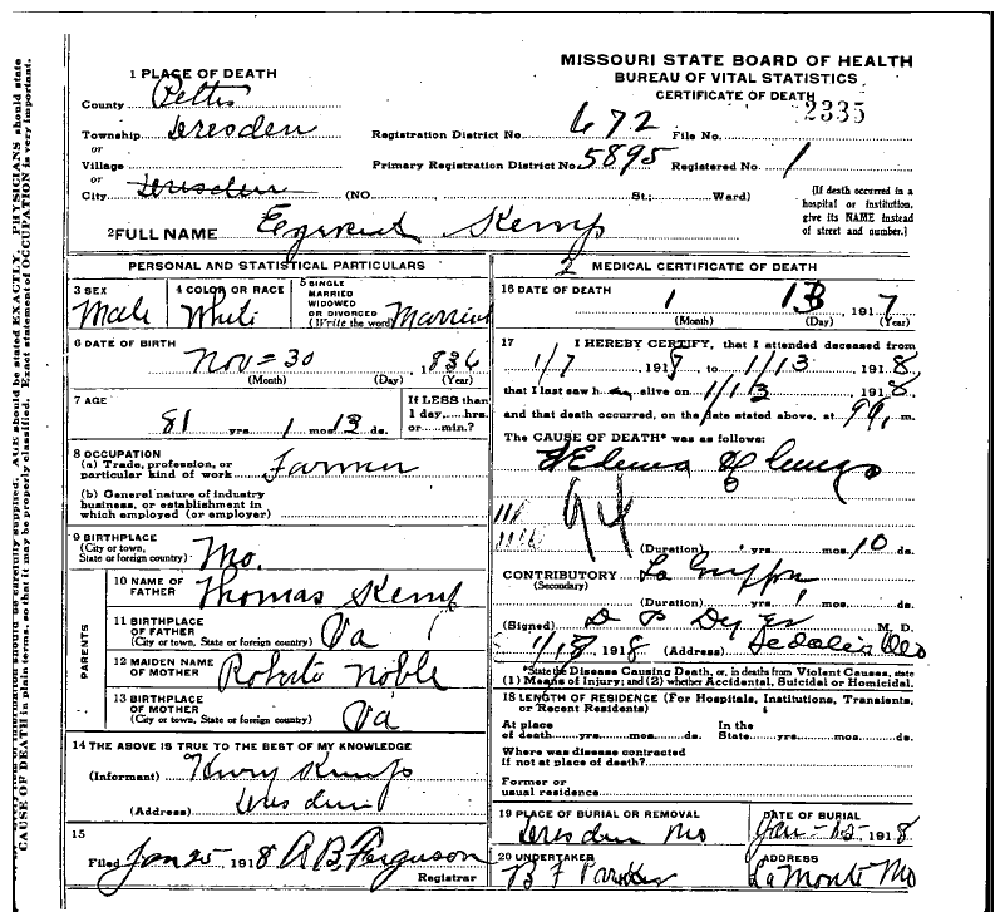 MISSOURI STATE BOARD OF HEALTH
BUREAU OF VITAL STATISTICS
CERTIFICATE OF DEATH
2335
1 PLACE OF DEATH
County Pettis
Township Dresden Registration District No. 672 File No.
or
Village Primary Registration District No. 5895 Registered No. 1
or
City Dresden (NO. , St.; Ward)
(If death occurred in a
hospital or institution,
give its NAME instead
of street and number.)
2 FULL NAME Kemp
PERSONAL AND STATISTICAL PARTICULARS
3 SEX
Male
4 COLOR OR RACE
White
5 SINGLE
MARRIED
WIDOWED
OR DIVORCED
(Write the word) Married
6 DATE OF BIRTH
Nov = 30 , 1836
(Month) (Day) (Year)
7 AGE
81 yrs. 1 mos. 13 ds.
If LESS than
1 day,....hrs.
or....min.?
8 OCCUPATION
(a) Trade, profession, or
particular kind of work Farmer
(b) General nature of industry
business, or establishment in
which employed (or employer)
9 BIRTHPLACE
(City or town,
State or foreign country) Mo.
PARENTS
10 NAME OF
FATHER Thomas Kemp
11 BIRTHPLACE
OF FATHER
(City or town, State or foreign country) Va
12 MAIDEN NAME
OF MOTHER Noble
13 BIRTHPLACE
OF MOTHER
(City or town, State or foreign country) Va
14 THE ABOVE IS TRUE TO THE BEST OF MY KNOWLEDGE
(Informant) Henry Kemp
(Address) Dresden
15
Filed Jan 25 1918 A B Ferguson
Registrar
2 MEDICAL CERTIFICATE OF DEATH
16 DATE OF DEATH
1 13 1917
(Month) (Day) (Year)
17 I HEREBY CERTIFY, that I attended deceased from
1/7, 1918, to 1/13, 1918,
that I last saw h alive on 1/13, 1918,
and that death occurred, on the date stated above, at m.
The CAUSE OF DEATH* was as follows:
Edema of lungs
94
(Duration) yrs. mos. 10 ds.
CONTRIBUTORY La Grippe
(Secondary)
(Duration) yrs. 1 mos. ds.
(Signed) M. D.
1918 (Address) Sedalia Mo
*State the Disease Causing Death, or, in deaths from Violent Causes, state
(1) Means of Injury; and (2) whether Accidental, Suicidal or Homicidal.
18 LENGTH OF RESIDENCE (For Hospitals, Institutions, Transients,
or Recent Residents)
At place
of death yrs. mos. ds.
In the
State yrs. mos. ds.
Where was disease contracted
if not at place of death?
Former or
usual residence
19 PLACE OF BURIAL OR REMOVAL
Dresden Mo
DATE OF BURIAL
Jan - 15 - 1918
20 UNDERTAKER
B F
ADDRESS
LaMonte Mo
should be carefully supplied. AGE should be stated EXACTLY. PHYSICIANS should state
CAUSE OF DEATH in plain terms, so that it may be properly classified. Exact statement of OCCUPATION is very important.